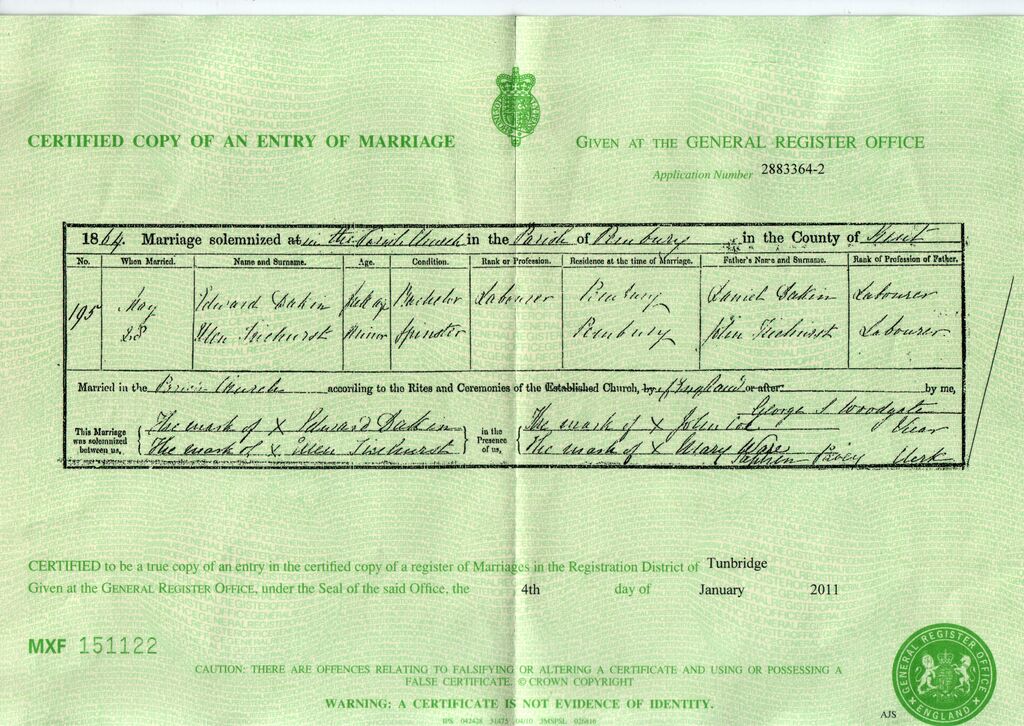 CERTIFIED COPY OF AN ENTRY OF MARRIAGE
GIVEN AT THE GENERAL REGISTER OFFICE
Application Number 2883364-2
1864. Marriage solemnized at in the Parish Church in the Parish of Pembury in the County of Kent
No. When Married. Name and Surname. Age. Condition. Rank or Profession. Residence at the time of Marriage. Father's Name and Surname. Rank of Profession of Father.
195 May Edward Dakin full age Bachelor Labourer Pembury Daniel Dakin Labourer
28 Ellen Ticehurst Minor Spinster Pembury John Ticehurst Labourer
Married in the Parish Church according to the Rites and Ceremonies of the Established Church, by of England or after by me,
George S Woodgate
Vicar
This Marriage was solemnized between us, The mark of X Edward Dakin in the Presence of us, The mark of X John Cox
The mark of X Ellen Ticehurst The mark of X Mary Ware
Stephen Clerk
CERTIFIED to be a true copy of an entry in the certified copy of a register of Marriages in the Registration District of Tunbridge
Given at the GENERAL REGISTER OFFICE, under the Seal of the said Office, the 4th day of January 2011
MXF 151122
CAUTION: THERE ARE OFFENCES RELATING TO FALSIFYING OR ALTERING A CERTIFICATE AND USING OR POSSESSING A
FALSE CERTIFICATE. © CROWN COPYRIGHT
WARNING: A CERTIFICATE IS NOT EVIDENCE OF IDENTITY.
GENERAL REGISTER OFFICE ENGLAND
AJS